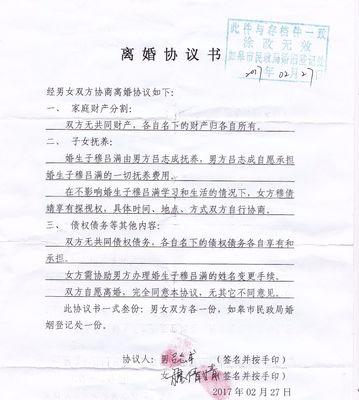 此件与存档件一致
涂改无效
如皋市民政局婚姻登记处
2017年02月27日
离婚协议书
经男女双方协商离婚协议如下:
一、 家庭财产分割:
双方无共同财产,各自名下的财产归各自所有。
二、 子女抚养:
婚生子穆吕满由男方吕志成抚养,男方吕志成自愿承担
穆吕满的一切抚养费用。
在不影响婚生子穆吕满学习和生活的情况下,女方穆倩
婧享有探视权,具体时间、地点、方式双方自行协商。
三、 债权债务等其他内容:
双方无共同债权债务,各自名下的债权债务各自享有和
承担。
女方需协助男方办理婚生子穆吕满的姓名变更手续。
双方自愿离婚,完全同意本协议,无其它不同意见。
此协议书一式叁份:男女双方各一份,如皋市民政局婚
姻登记处一份。
协议人:男 (签名并按手印)
女 (签名并按手印)
2017年02月27日